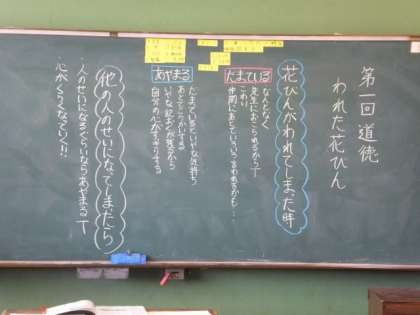 第一回道徳
われた花びん
花びんがわれてしまった時
だまっている
なんとなく
先生におこられるから
こわい
仲間にあとでいろいろ言われるかも…
あやまる
だまっているといやな気持ち
あとでこうかいする
いやな記おくが残るから
自分の心がすっきりする
他の人のせいになってしまったら
・人のせいになるぐらいならあやまる
・心がくらくなっていく!!